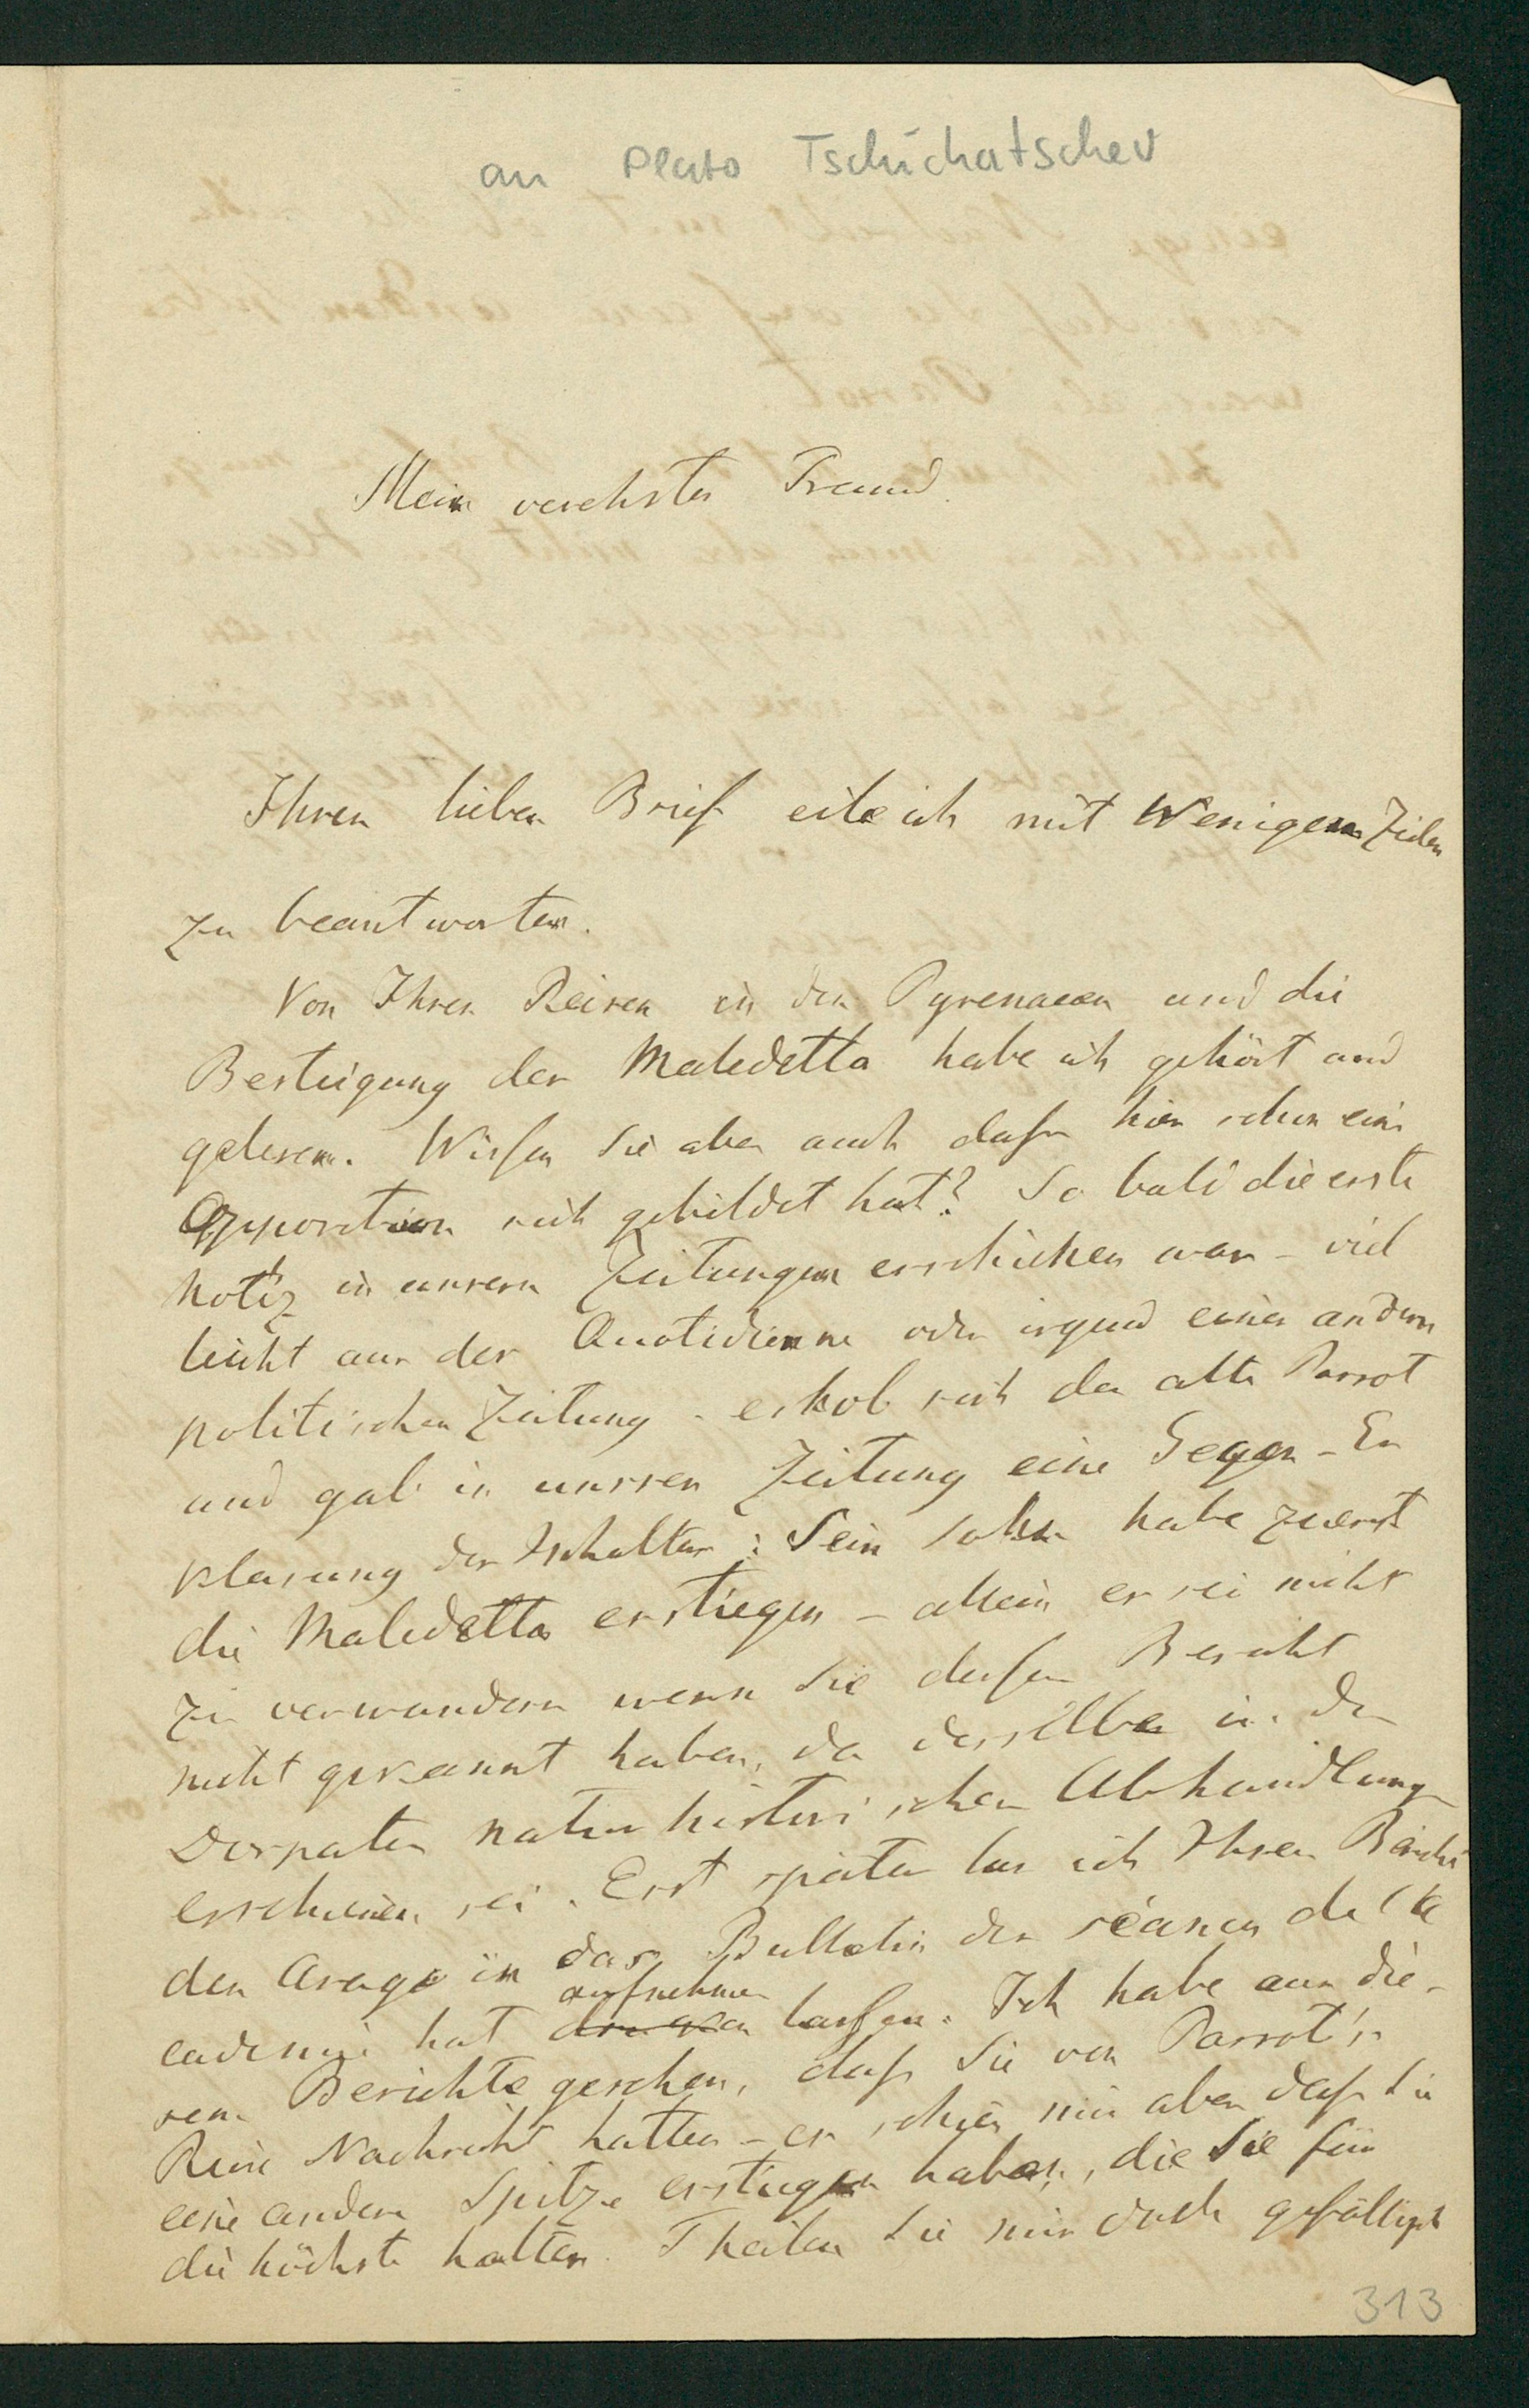 an Plato Tschichatschev
Mein verehrter Freund.
Ihren lieben Brief eile ich mit Wenigen Zeilen
zu beantworten.
Von Ihren Reisen in den Pyrenaeen und die
Besteigung der Maledetta habe ich gehört und
gelesen. Wissen Sie aber auch dass hier schon eine
Opposition sich gebildet hat? So bald die erste
Notiz in unsern Zeitungen erschienen war – viel
leicht aus der Quotidienne oder irgend einer andern
politischen Zeitung – erhob sich der alte Parrot
und gab in unsrer Zeitung eine Gegen-Er
klärung des Inhaltes: Sein Sohn habe zuerst
die Maledetta erstiegen – allein es sei nicht
zu verwundern wenn Sie dessen Bericht
nicht gekannt haben, da derselbe in den
Dorpater naturhistorischen Abhandlungen
erschienen sei. Erst später las ich Ihren Bericht
den Arago in das Bulletin der séances de l'A
aufnehmen
cademie hat drucken lassen. Ich habe aus die-
sem Berichte gesehen, dass Sie von Parrot's
Reise Nachricht hatten – es schien mir aber dass Sie
eine andere Spitze erstiegen haben, die Sie für
die höchste halten. Theilen Sie mir doch gefälligst
313